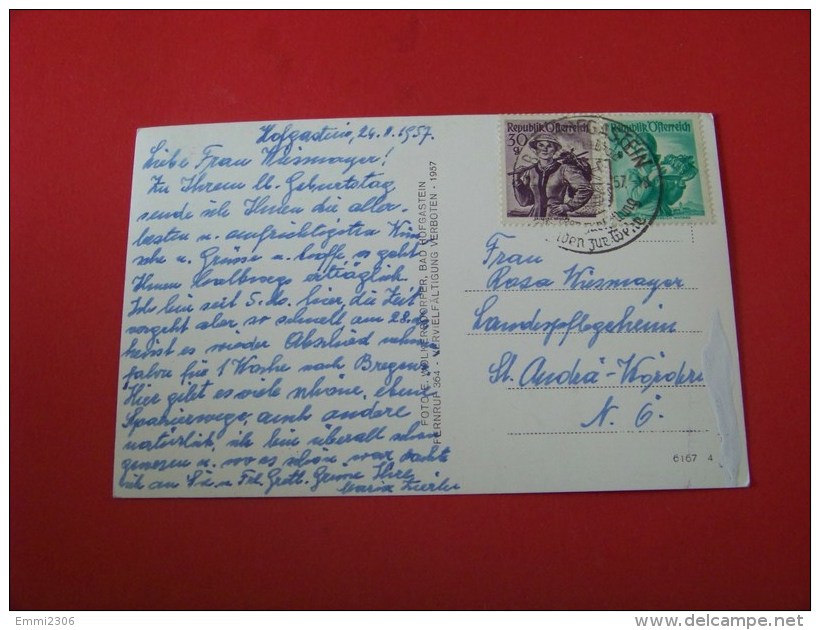 Hofgastein, 24.8.1957.
Liebe Frau Wiesmayer!
Zu Ihrem lb. Geburtstag
sende ich Ihnen die aller-
besten u. aufrichtigsten Wün
sche u. Grüsse u. hoffe, es geht
Ihnen halbwegs erträglich.
Ich bin seit 5. ds. hier, die Zeit
vergeht aber so schnell am 28. ds
heisst es wieder Abschied nehmen
fahre für 1 Woche nach Bregenz
Hier gibt es viele schöne, ebene
Spazierwege, auch andere
natürlich, ich bin überall schon
gewesen u. wo es schön war dachte
ich an Sie u. Frl. Gretl. Grüsse Ihre
Maria
FOTO F. WOLKERSTORFER, BAD HOFGASTEIN
FERNRUF 364 - VERVIELFÄLTIGUNG VERBOTEN - 1957
Republik Österreich
30 g
Republik Österreich
Frau
Rosa Wiesmayer
Landespflegeheim
St. Andrä-Wördern
N. Ö.
6167 4
Emmi2306
delcampe.net